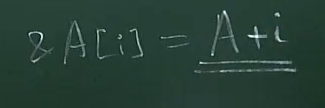 &A[i] = A+i